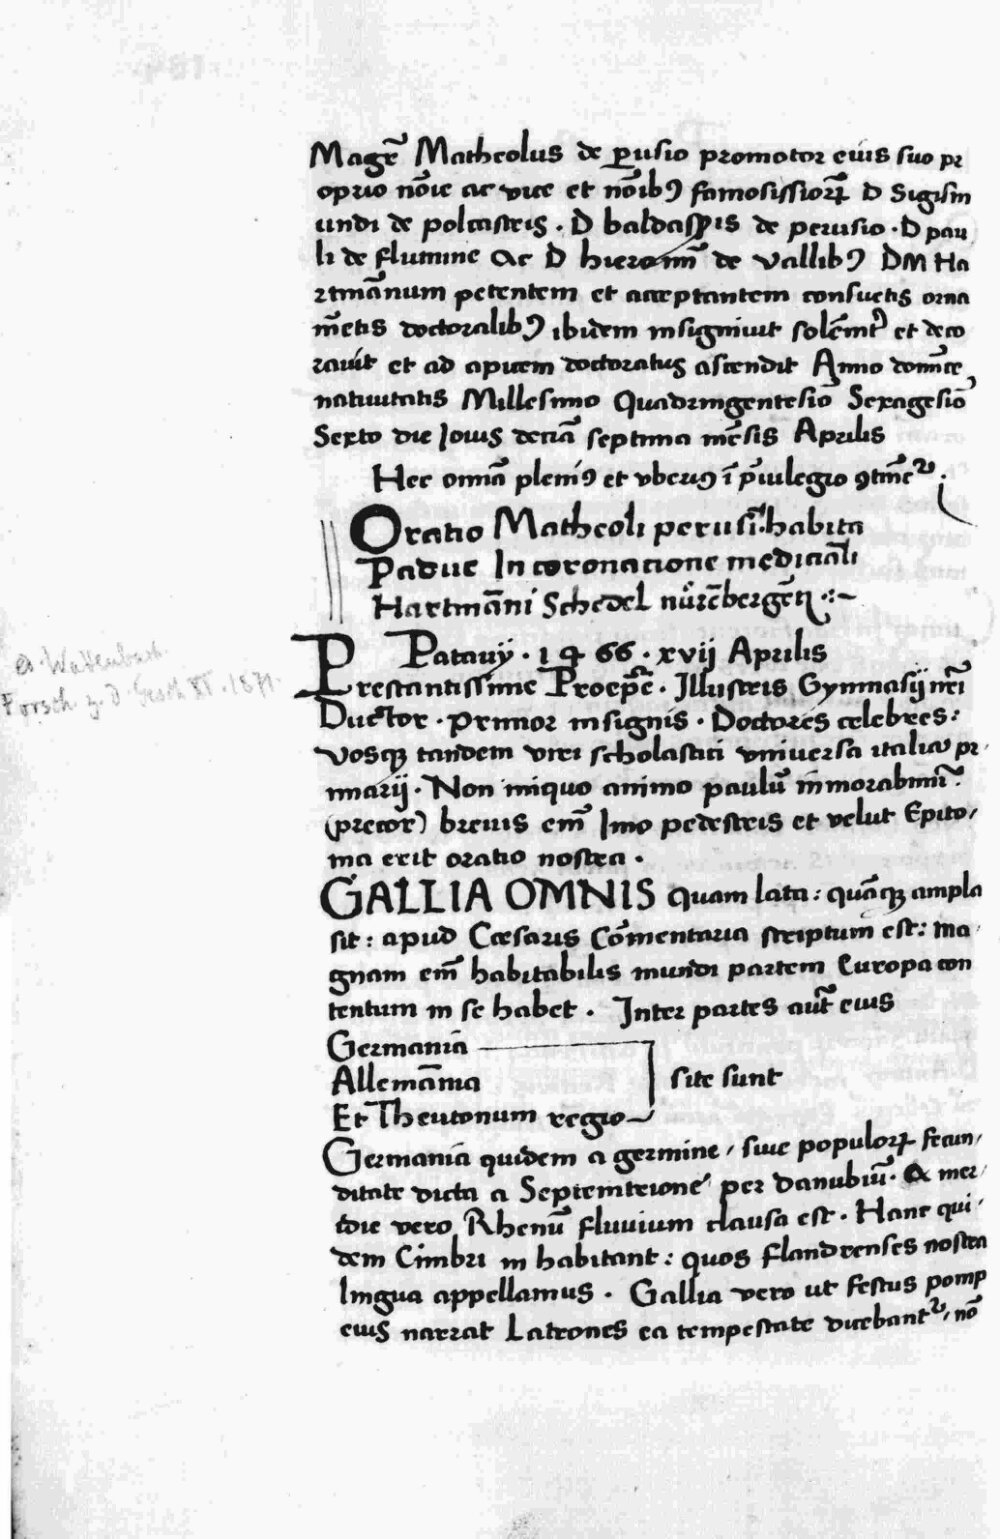 Mag̅r Matheolus de ꝑusio promotor eius suo pr
oprio no̅ie ac vice et no̅ibꝰ famosissiorꝝ D Sigism
undi de polcastris . D baldaꝑis de perusio . D pau
li de flumine Ac D hieronim̅ de vallibꝰ DM Ha
rtma̅num petentem et acceptantem consuetis orna
me̅tis doctoralibꝰ ibidem insigniuit sole̅mtꝰ et deco
rauit et ad apicem doctoratus ascendit Anno domi̅ce
natiuitatis Millesimo Quadringentesio̅ Sexagesio̅
Sexto die Iouis decia̅ septima me̅sis Aprilis
Hec omia̅ pleniꝰ et vberiꝰ i̅ pꝛiuilegio ꝯtine̅t᷑ .
Oratio Matheoli perusi̅ . habita
Padue In coronacione medicinali̅
Hartma̅ni Schedel nůre̅berge̅ .
Patauij . 1466 . xvij Aprilis
Prestantissime Proep̅e . Illustris Gymnasij nr̅i
Ductor . Primor insignis . Doctores celebres :
vosqꝫ tandem viri scholastici vniuersa italia pri
marij . Non iniquo animo paulu̅ inmorabimi̅r .
(precor) breuis em̅ Imo pedestris et velut Epito/
ma erit oratio nostra .
GALLIA OMNIS quam lata : qua̅qꝫ ampla
sit : apud Cæsaris Co̅mentaria scriptum est : ma
gnam em̅ habitabilis mundi partem Europa con
tentum in se habet . Inter partes aut̅ eius
Germania̅
Allema̅nia site sunt
Et Theutonum regio
Germania̅ quidem a germine / siue populorꝝ fecun/
ditate dicta a Septemtrione per danubiu̅ . A mer/
idie vero Rhenu̅ fluuium clausa est . Hanc qui
dem Cimbri in habitant : quos flandrenses nostra
lingua appellamus . Gallia vero ut festus pomp
eius narrat Latrones ea tempestate dicebant᷑ , no̅
a. Wattenbach
Forsch. z. d. Gesch XI . 1871 .